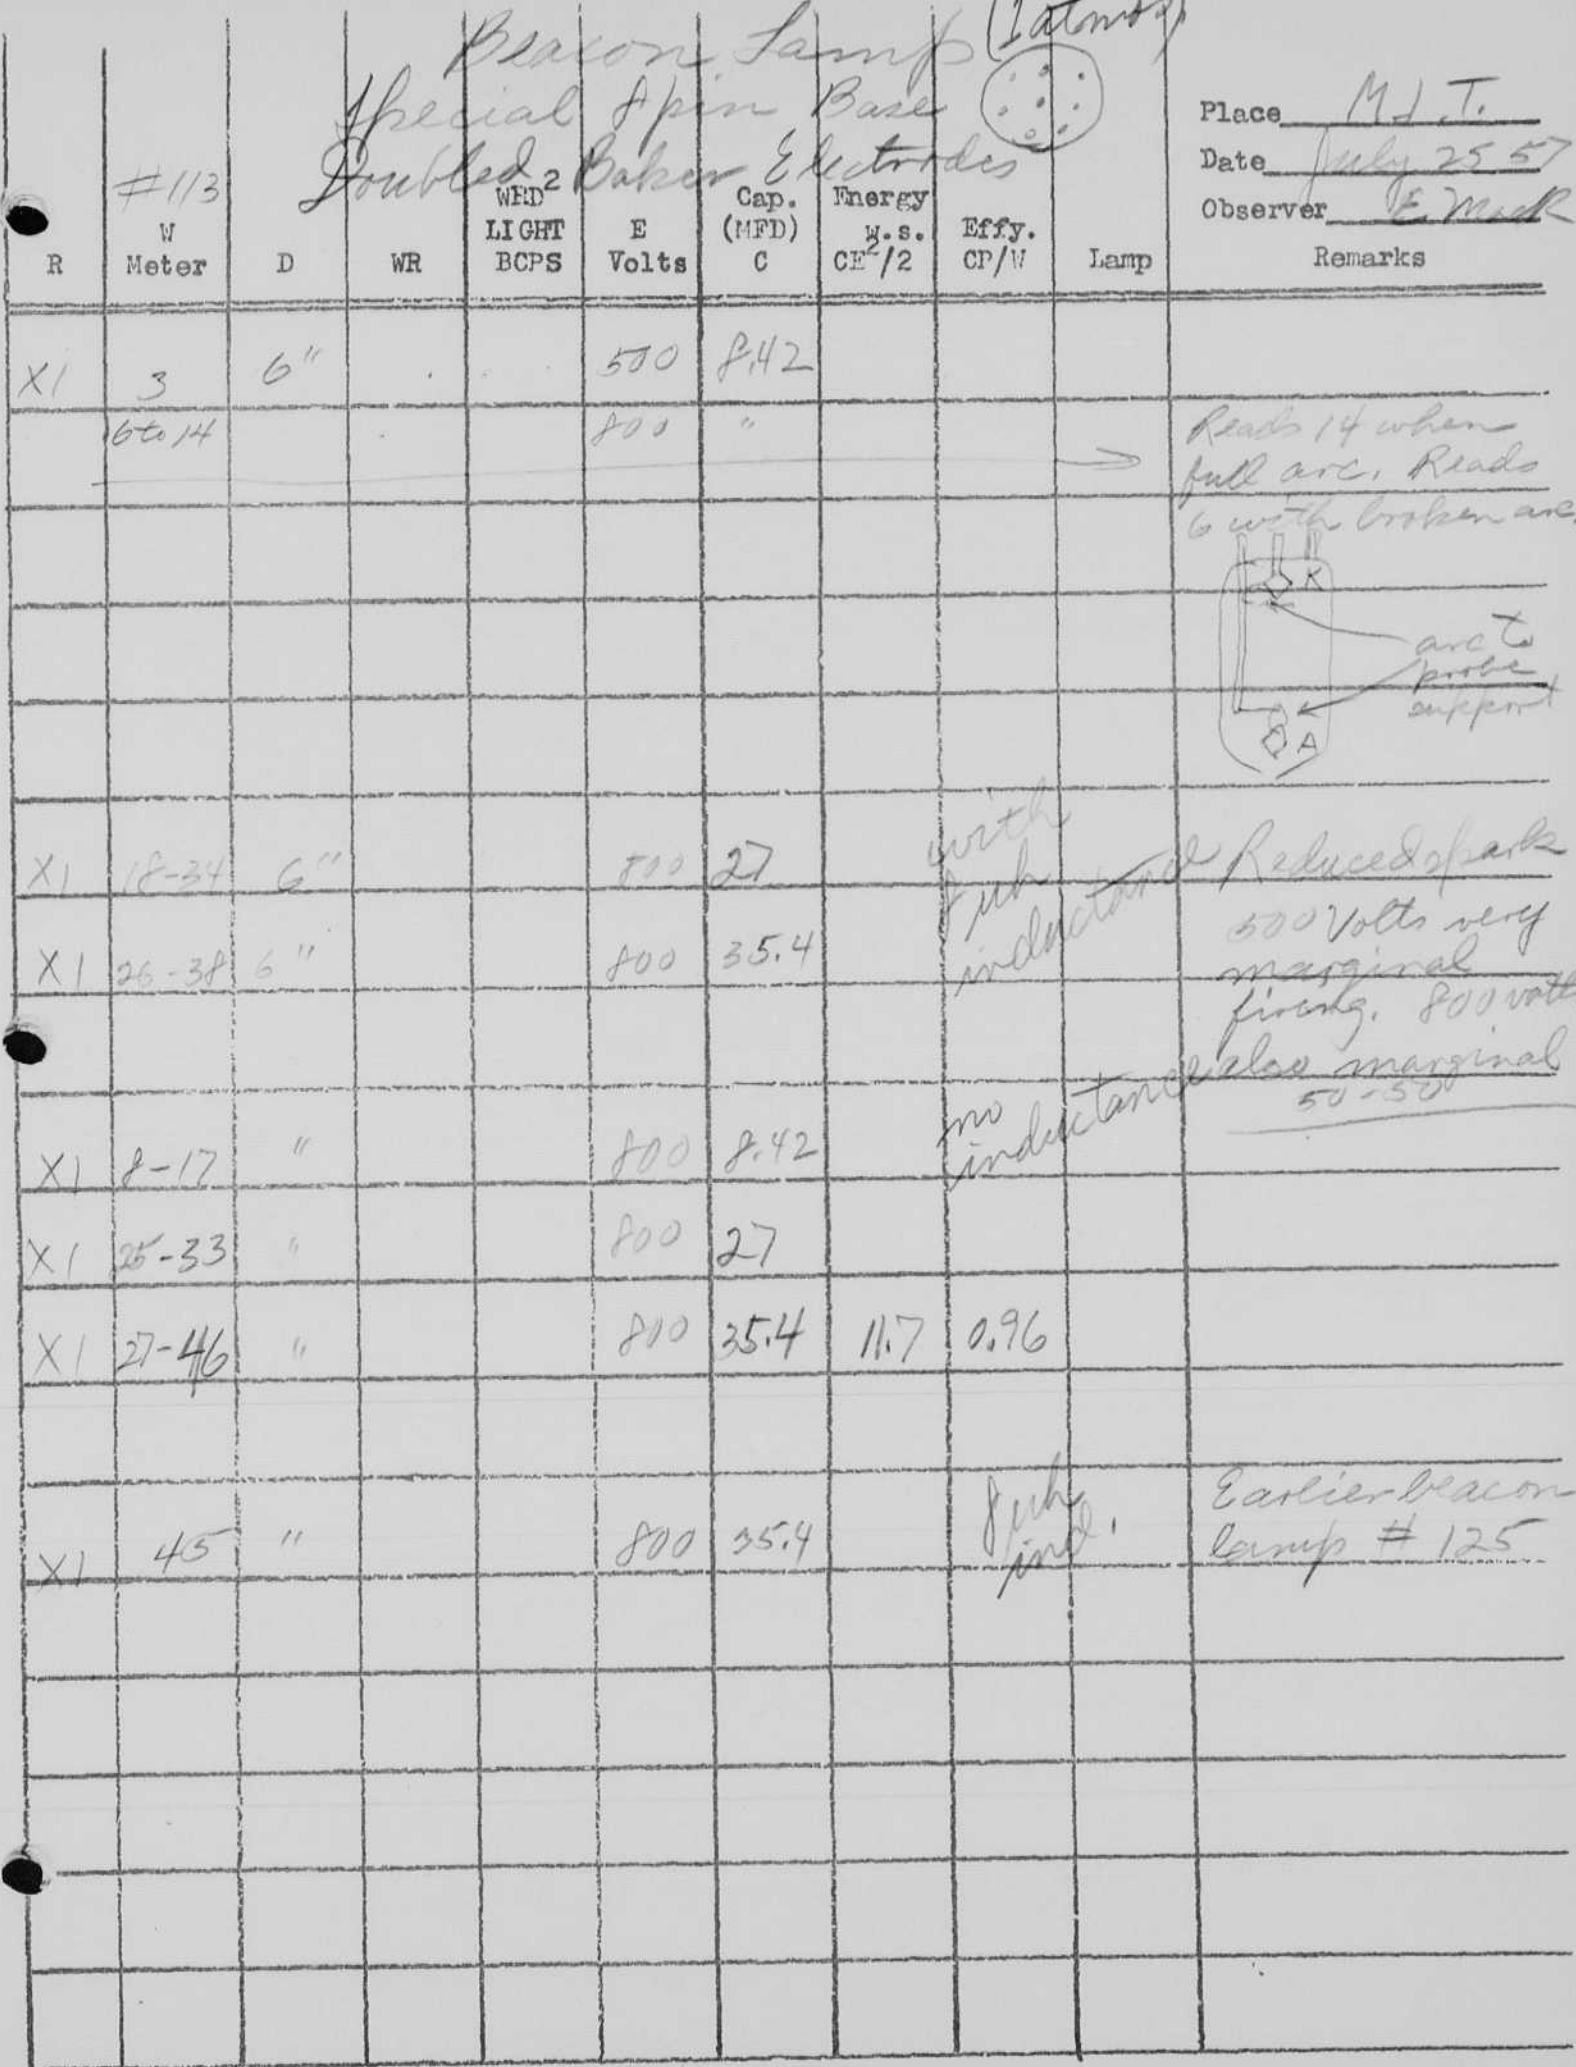 Beacon Lamp (1 atmos)
Special 8 pin Base
Doubled Baker Electrodes
Place M.I.T.
Date July 25 57
Observer E. Mack
#113
R
W Meter
D
WR
WRD2 LIGHT BCPS
E Volts
Cap. (MFD) C
Energy w.s. CE2/2
Effy. CP/W
Lamp
Remarks
X1 3 6" 500 8.42
6 to 14 800 "
Reads 14 when
full arc. Reads
6 with broken arc.
K
arc to
probe
support
A
X1 18-34 6" 800 27
with
8 uh
inductance
Reduced spark
X1 26-38 6" 800 35.4
500 Volts very
marginal
firing. 800 volts
also marginal
50-50
no
inductance
X1 8-17 " 800 8.42
X1 25-33 " 800 27
X1 27-46 " 800 35.4 11.7 0.96
X1 45 " 800 35.4
8 uh
ind.
Earlier beacon
lamp # 125